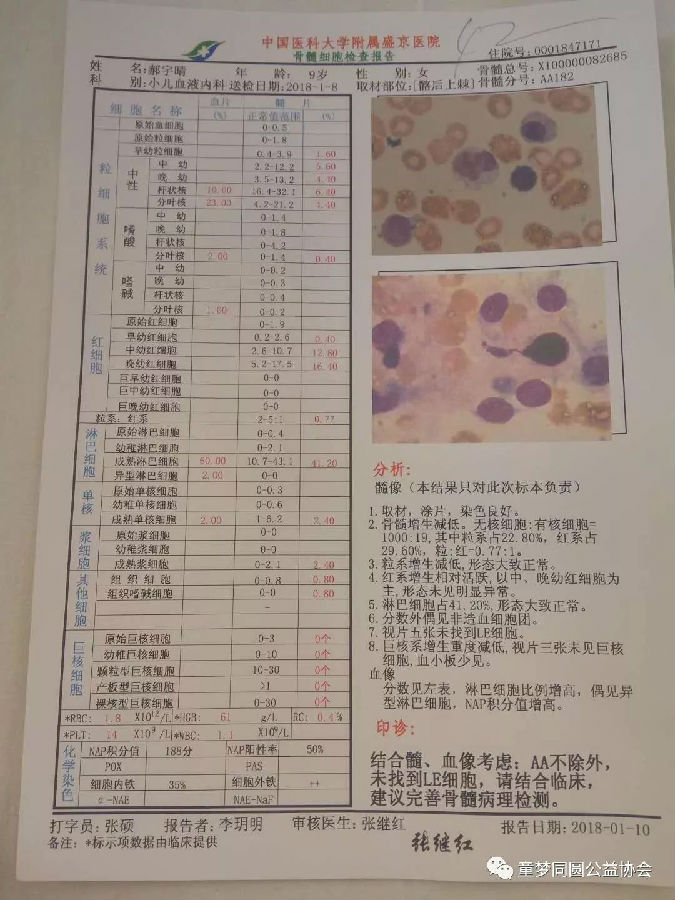 中国医科大学附属盛京医院
骨髓细胞检查报告
住院号:0001847171
姓 名:郝宇晴 年 龄: 9岁 性 别:女 骨髓总号:X100000082685
科 别:小儿血液内科 送检日期:2018-1-8 取材部位:[髂后上棘] 骨髓分号:AA182
细胞名称 血片 (%) 髓 片 正常值范围 (%)
粒细胞系统
原始血细胞 0-0.5
原始粒细胞 0-1.8
早幼粒细胞 0.4-3.9 1.60
中性
中 幼 2.2-12.2 5.60
晚 幼 3.5-13.2 4.40
杆状核 10.00 16.4-32.1 6.40
分叶核 23.00 4.2-21.2 4.40
嗜酸
中 幼 0-1.4
晚 幼 0-1.8
杆状核 0-4.2
分叶核 2.00 0-1.4 0.40
嗜碱
中 幼 0-0.2
晚 幼 0-0.3
杆状核 0-0.4
分叶核 1.00 0-0.2
红细胞
原始红细胞 0-1.9
早幼红细胞 0.2-2.6 0.40
中幼红细胞 2.6-10.7 12.80
晚幼红细胞 5.2-17.5 16.40
巨早幼红细胞 0-0
巨中幼红细胞 0-0
巨晚幼红细胞 0-0
粒系：红系 2-5:1 0.77
淋巴细胞
原始淋巴细胞 0-0.4
幼稚淋巴细胞 0-2.1
成熟淋巴细胞 60.00 10.7-43.1 41.20
异型淋巴细胞 2.00 0-0
单核
原始单核细胞 0-0.3
幼稚单核细胞 0-0.6
成熟单核细胞 2.00 1-6.2 2.40
浆细胞
原始浆细胞 0-0
幼稚浆细胞 0-0
成熟浆细胞 0-2.1 2.40
其他细胞
组织细胞 0-0.8 0.80
组织嗜碱细胞 0-0 0.80
-
巨核细胞
原始巨核细胞 0-3 0个
幼稚巨核细胞 0-10 0个
颗粒型巨核细胞 10-30 0个
产板型巨核细胞 >1 0个
裸核型巨核细胞 0-30 0个
*RBC: 1.8 X10¹²/L *HGB: 61 g/L RC: 0.4%
*PLT: 14 X10⁹/L *WBC: 1.1 X10⁹/L
化学染色
NAP积分值 188分 NAP阳性率 50%
POX PAS
细胞内铁 35% 细胞外铁 ++
α-NAE NAE-NaF
分析:
髓像（本结果只对此次标本负责）
1. 取材，涂片，染色良好。
2. 骨髓增生减低。无核细胞:有核细胞=
1000:19,其中粒系占22.80%，红系占
29.60%，粒:红=0.77:1。
3. 粒系增生减低,形态大致正常。
4. 红系增生相对活跃,以中、晚幼红细胞为
主,形态未见明显异常。
5. 淋巴细胞占41.20%,形态大致正常。
6. 分数外偶见非造血细胞团。
7. 视片五张未找到LE细胞。
8. 巨核系增生重度减低,视片三张未见巨核
细胞,血小板少见。
血像
分数见左表，淋巴细胞比例增高，偶见异
型淋巴细胞，NAP积分值增高。
印诊:
结合髓、血像考虑：AA不除外，
未找到LE细胞，请结合临床，
建议完善骨髓病理检测。
打字员:张硕 报告者:李玥明 审核医生:张继红 报告日期:2018-01-10
备注: *标示项数据由临床提供
张继红
童梦同圆公益协会